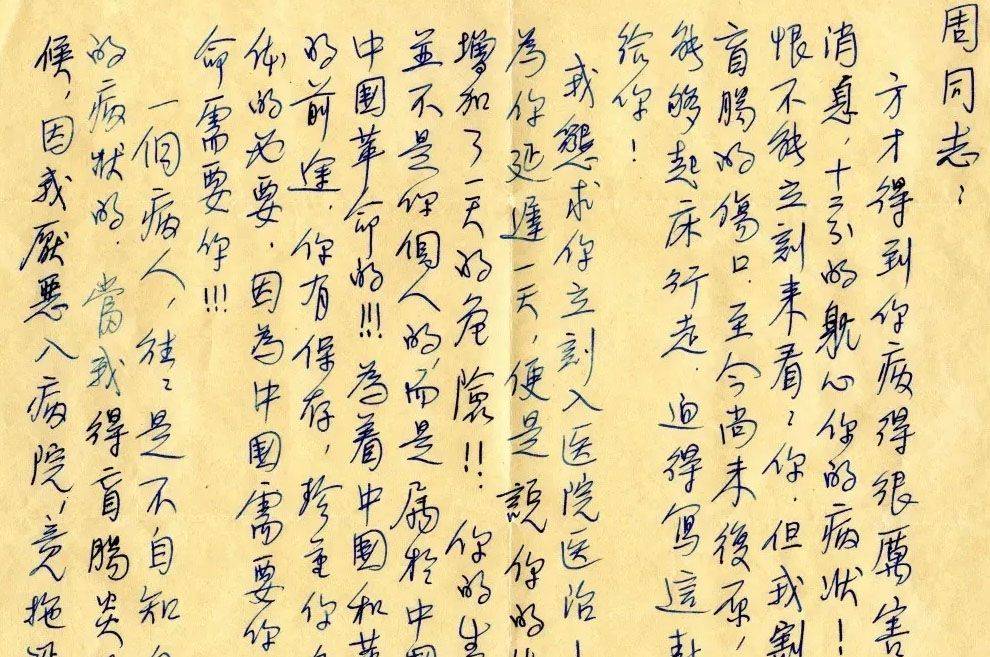 周同志：
方才得到你病得很厲害
消息，十二分的躭心你的病状！
恨不能立刻来看々你．但我割
盲腸的傷口．至今尚未復原，
能够起床行走．迫得写這封
给你！
我懇求你立刻入医院医治！
為你延遲一天，便是説你的
增加了一天的危險!!．你的生
並不是你個人的，而是属於中国
中国革命的!!!為着中国和革
的前途．你有保存，珍重你
体的必要．因為中国需要你
命需要你!!!
一個病人，往々是不自知
的病狀的．當我得盲腸炎
候，因我厭惡入病院，竟拖延